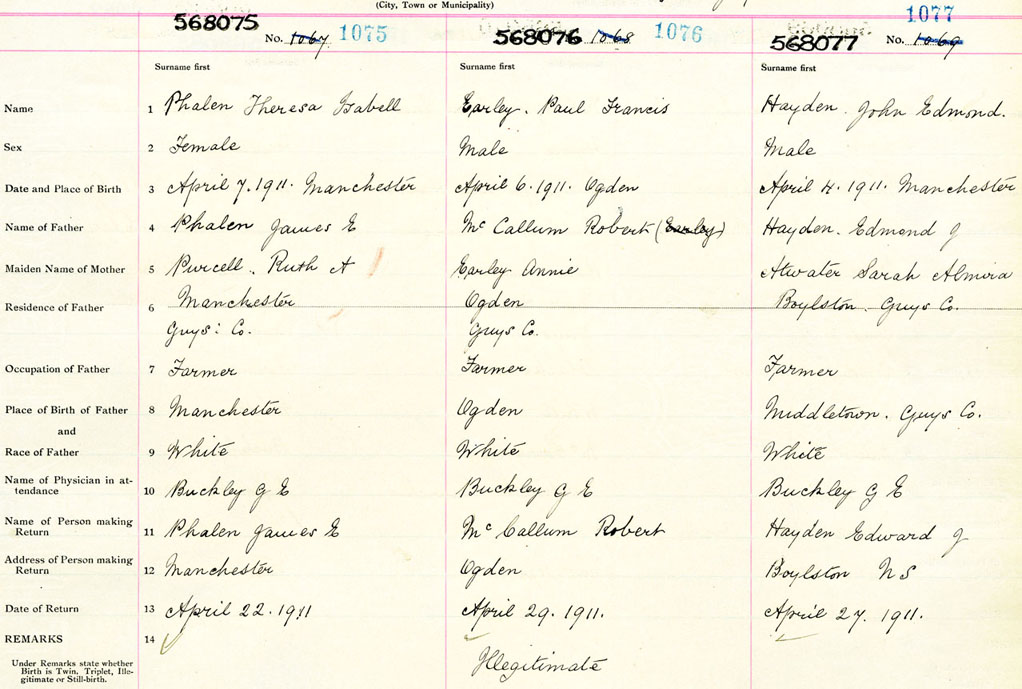 (City, Town or Municipality)
568075 No. 1067 1075 568076 1068 1076 568077 No. 1069 1077
Surname first Surname first Surname first
Name 1 Phalen Theresa Isabell Earley. Paul Francis Hayden. John Edmond.
Sex 2 Female Male Male
Date and Place of Birth 3 April 7. 1911. Manchester April 6. 1911. Ogden April 4. 1911. Manchester
Name of Father 4 Phalen James E Mc Callum Robert (Earley) Hayden. Edmond J
Maiden Name of Mother 5 Purcell. Ruth A Earley Annie Atwater Sarah Almira
Residence of Father 6 Manchester Ogden Boylston. Guys Co.
Guys: Co. Guys Co.
Occupation of Father 7 Farmer Farmer Farmer
Place of Birth of Father 8 Manchester Ogden Middletown. Guys Co.
and
Race of Father 9 White White White
Name of Physician in at-
tendance 10 Buckley G E Buckley G E Buckley G E
Name of Person making
Return 11 Phalen James E Mc Callum Robert Hayden Edward J
Address of Person making
Return 12 Manchester Ogden Boylston N S
Date of Return 13 April 22. 1911 April 29. 1911. April 27. 1911.
REMARKS 14
Under Remarks state whether
Birth is Twin, Triplet, Ille-
gitimate or Still-birth.
Illegitimate